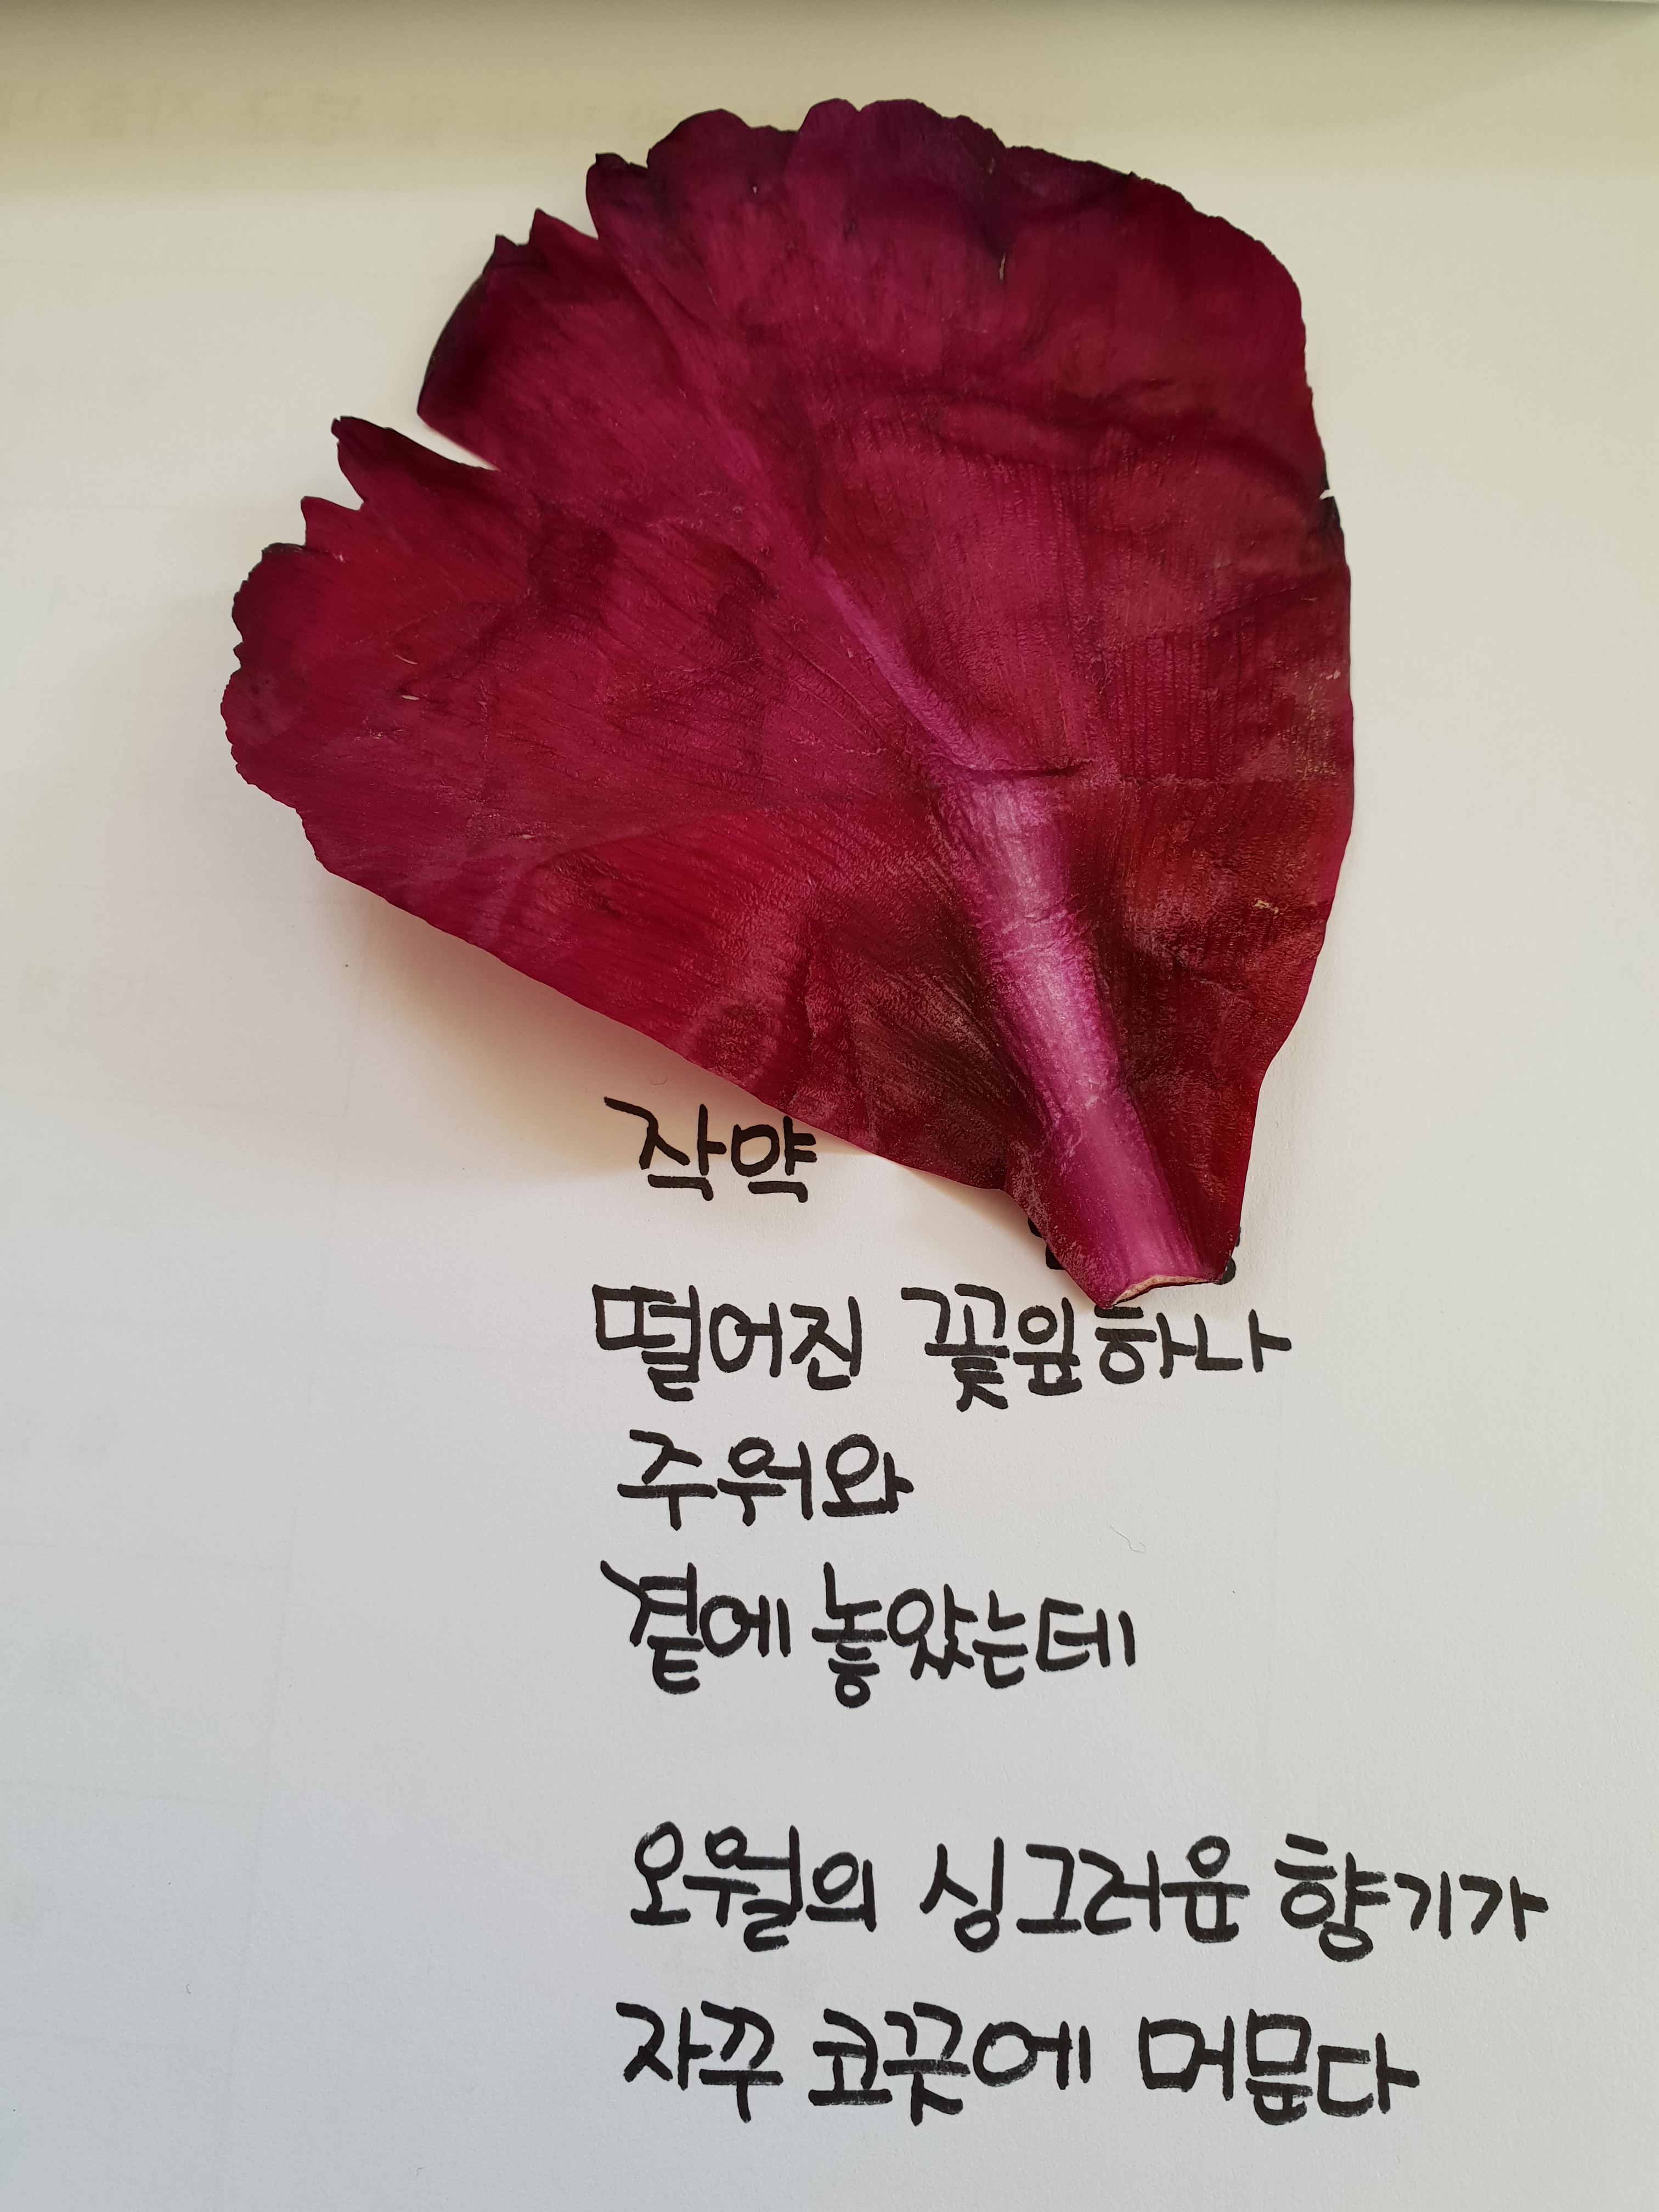 작약
떨어진 꽃잎하나
주워와
곁에 놓았는데
오월의 싱그러운 향기가
자꾸 코끗에 머문다